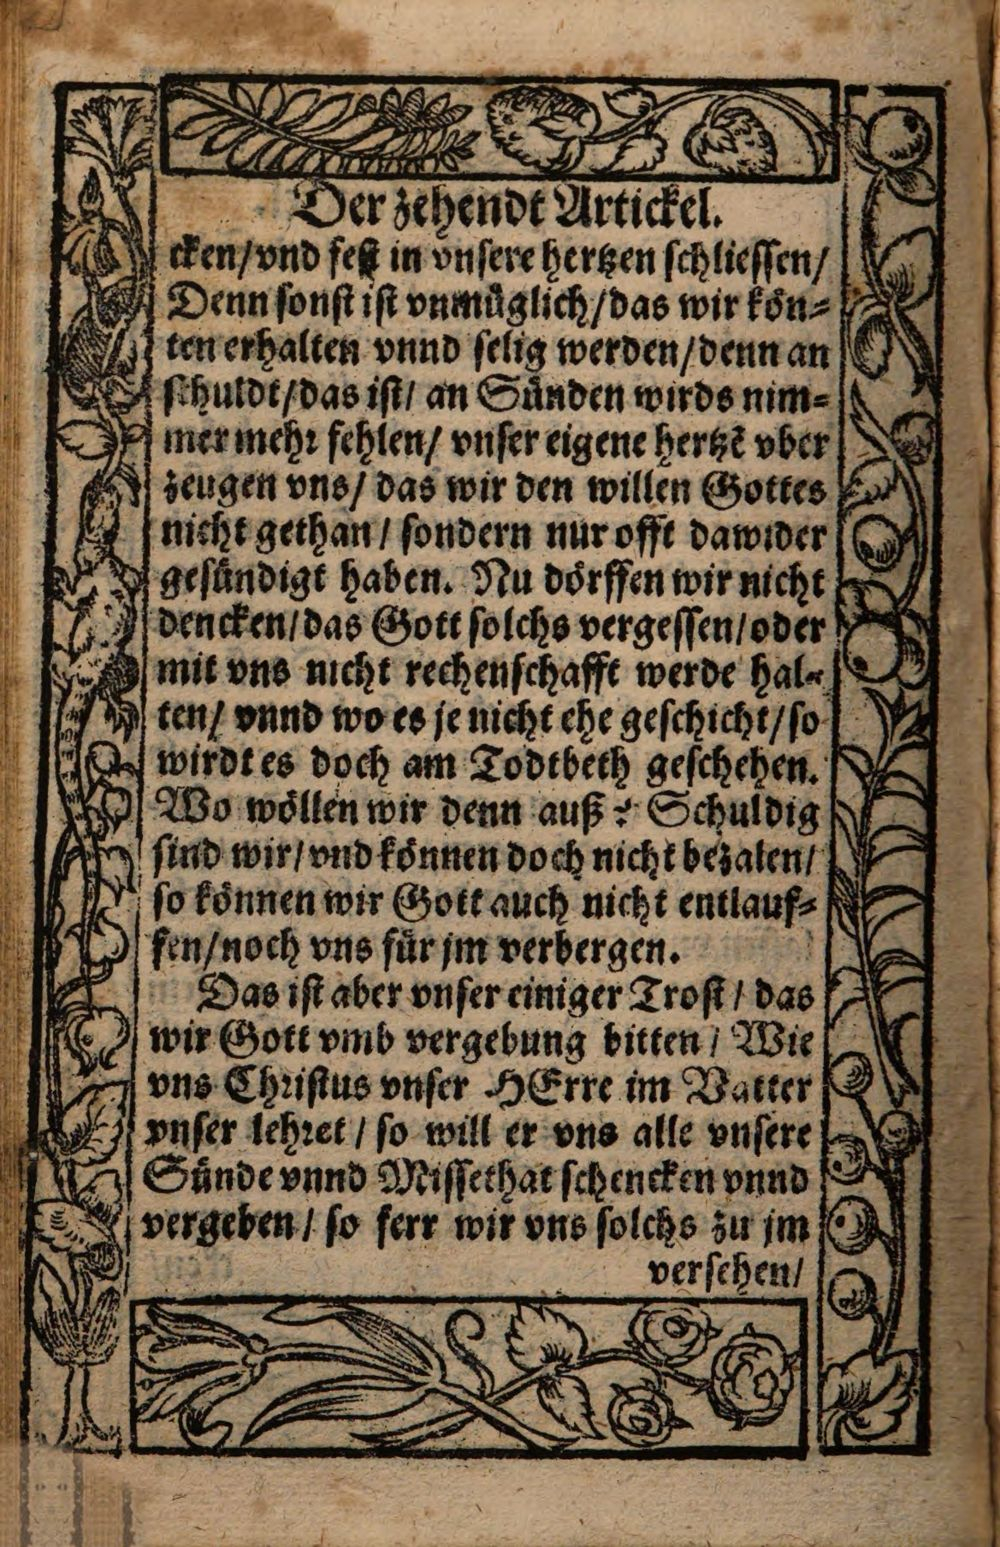 Der zehendt Artickel.
cken/vnd fest in vnsere hertzen schliessen/
Denn sonst ist vnmüglich/das wir kön⸗
ten erhalten vnnd selig werden/denn an
schuldt/das ist/ an Sünden wirds nim⸗
mer mehr fehlen/ vnser eigene hertzẽ vber
zeugen vns/ das wir den willen Gottes
nicht gethan/ sondern nur offt dawider
gesündigt haben. Nu dörffen wir nicht
dencken/das Gott solchs vergessen/oder
mit vns nicht rechenschafft werde hal⸗
ten/ vnnd wo es je nicht ehe geschicht/so
wirdt es doch am Todtbeth geschehen.
Wo wöllen wir denn auß? Schuldig
sind wir/vnd können doch nicht bezalen/
so können wir Gott auch nicht entlauf⸗
fen/noch vns für jm verbergen.
Das ist aber vnser einiger Trost/ das
wir Gott vmb vergebung bitten/ Wie
vns Christus vnser HErre im Vatter
vnser lehret/ so will er vns alle vnsere
Sünde vnnd Missethat schencken vnnd
vergeben/ so ferr wir vns solchs zu jm
versehen/